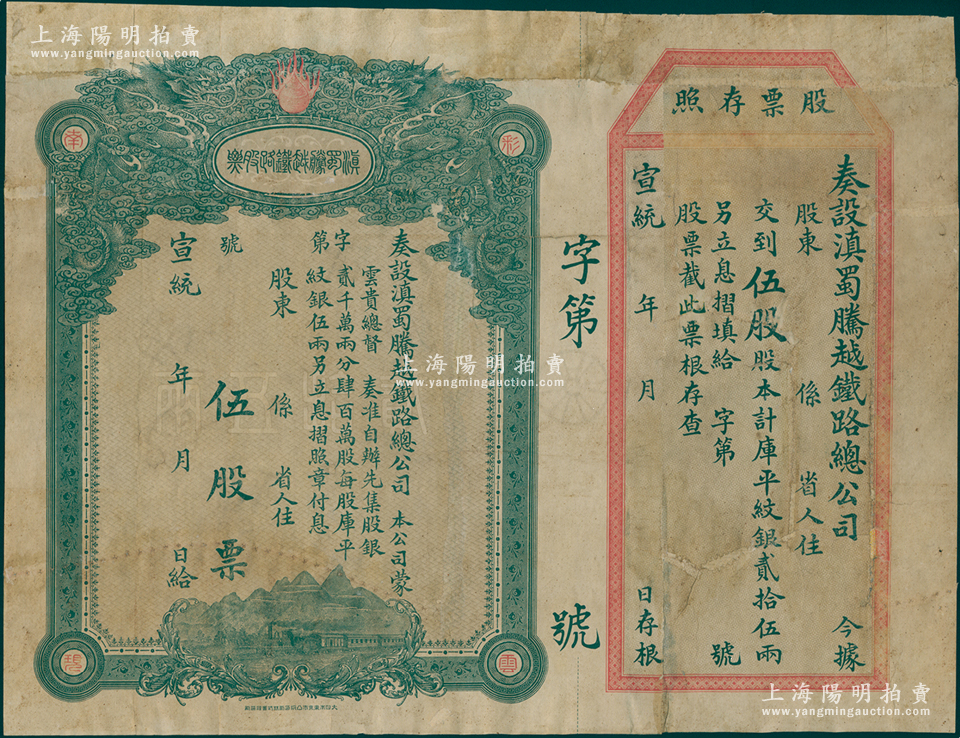 上海陽明拍賣
www.yangmingauction.com
股票存照
奏設滇蜀騰越鐵路總公司 今據
股東 係 省人住
交到伍股股本計庫平紋銀貳拾伍兩
另立息摺填給 字第 號
股票截此票根存查
宣統 年 月 日存根
字第 號
滇蜀騰越鐵路股票
彩
南
奏設滇蜀騰越鐵路總公司 本公司蒙
雲貴總督 奏准自辦先集股銀
字貳千萬兩分肆百萬股每股庫平
第紋銀伍兩另立息摺照章付息
股東 係 省人住
號
伍股票
宣統 年 月 日給
雲
上海陽明拍賣
www.yangmingauction.com
上海陽明拍賣
www.yangmingauction.com